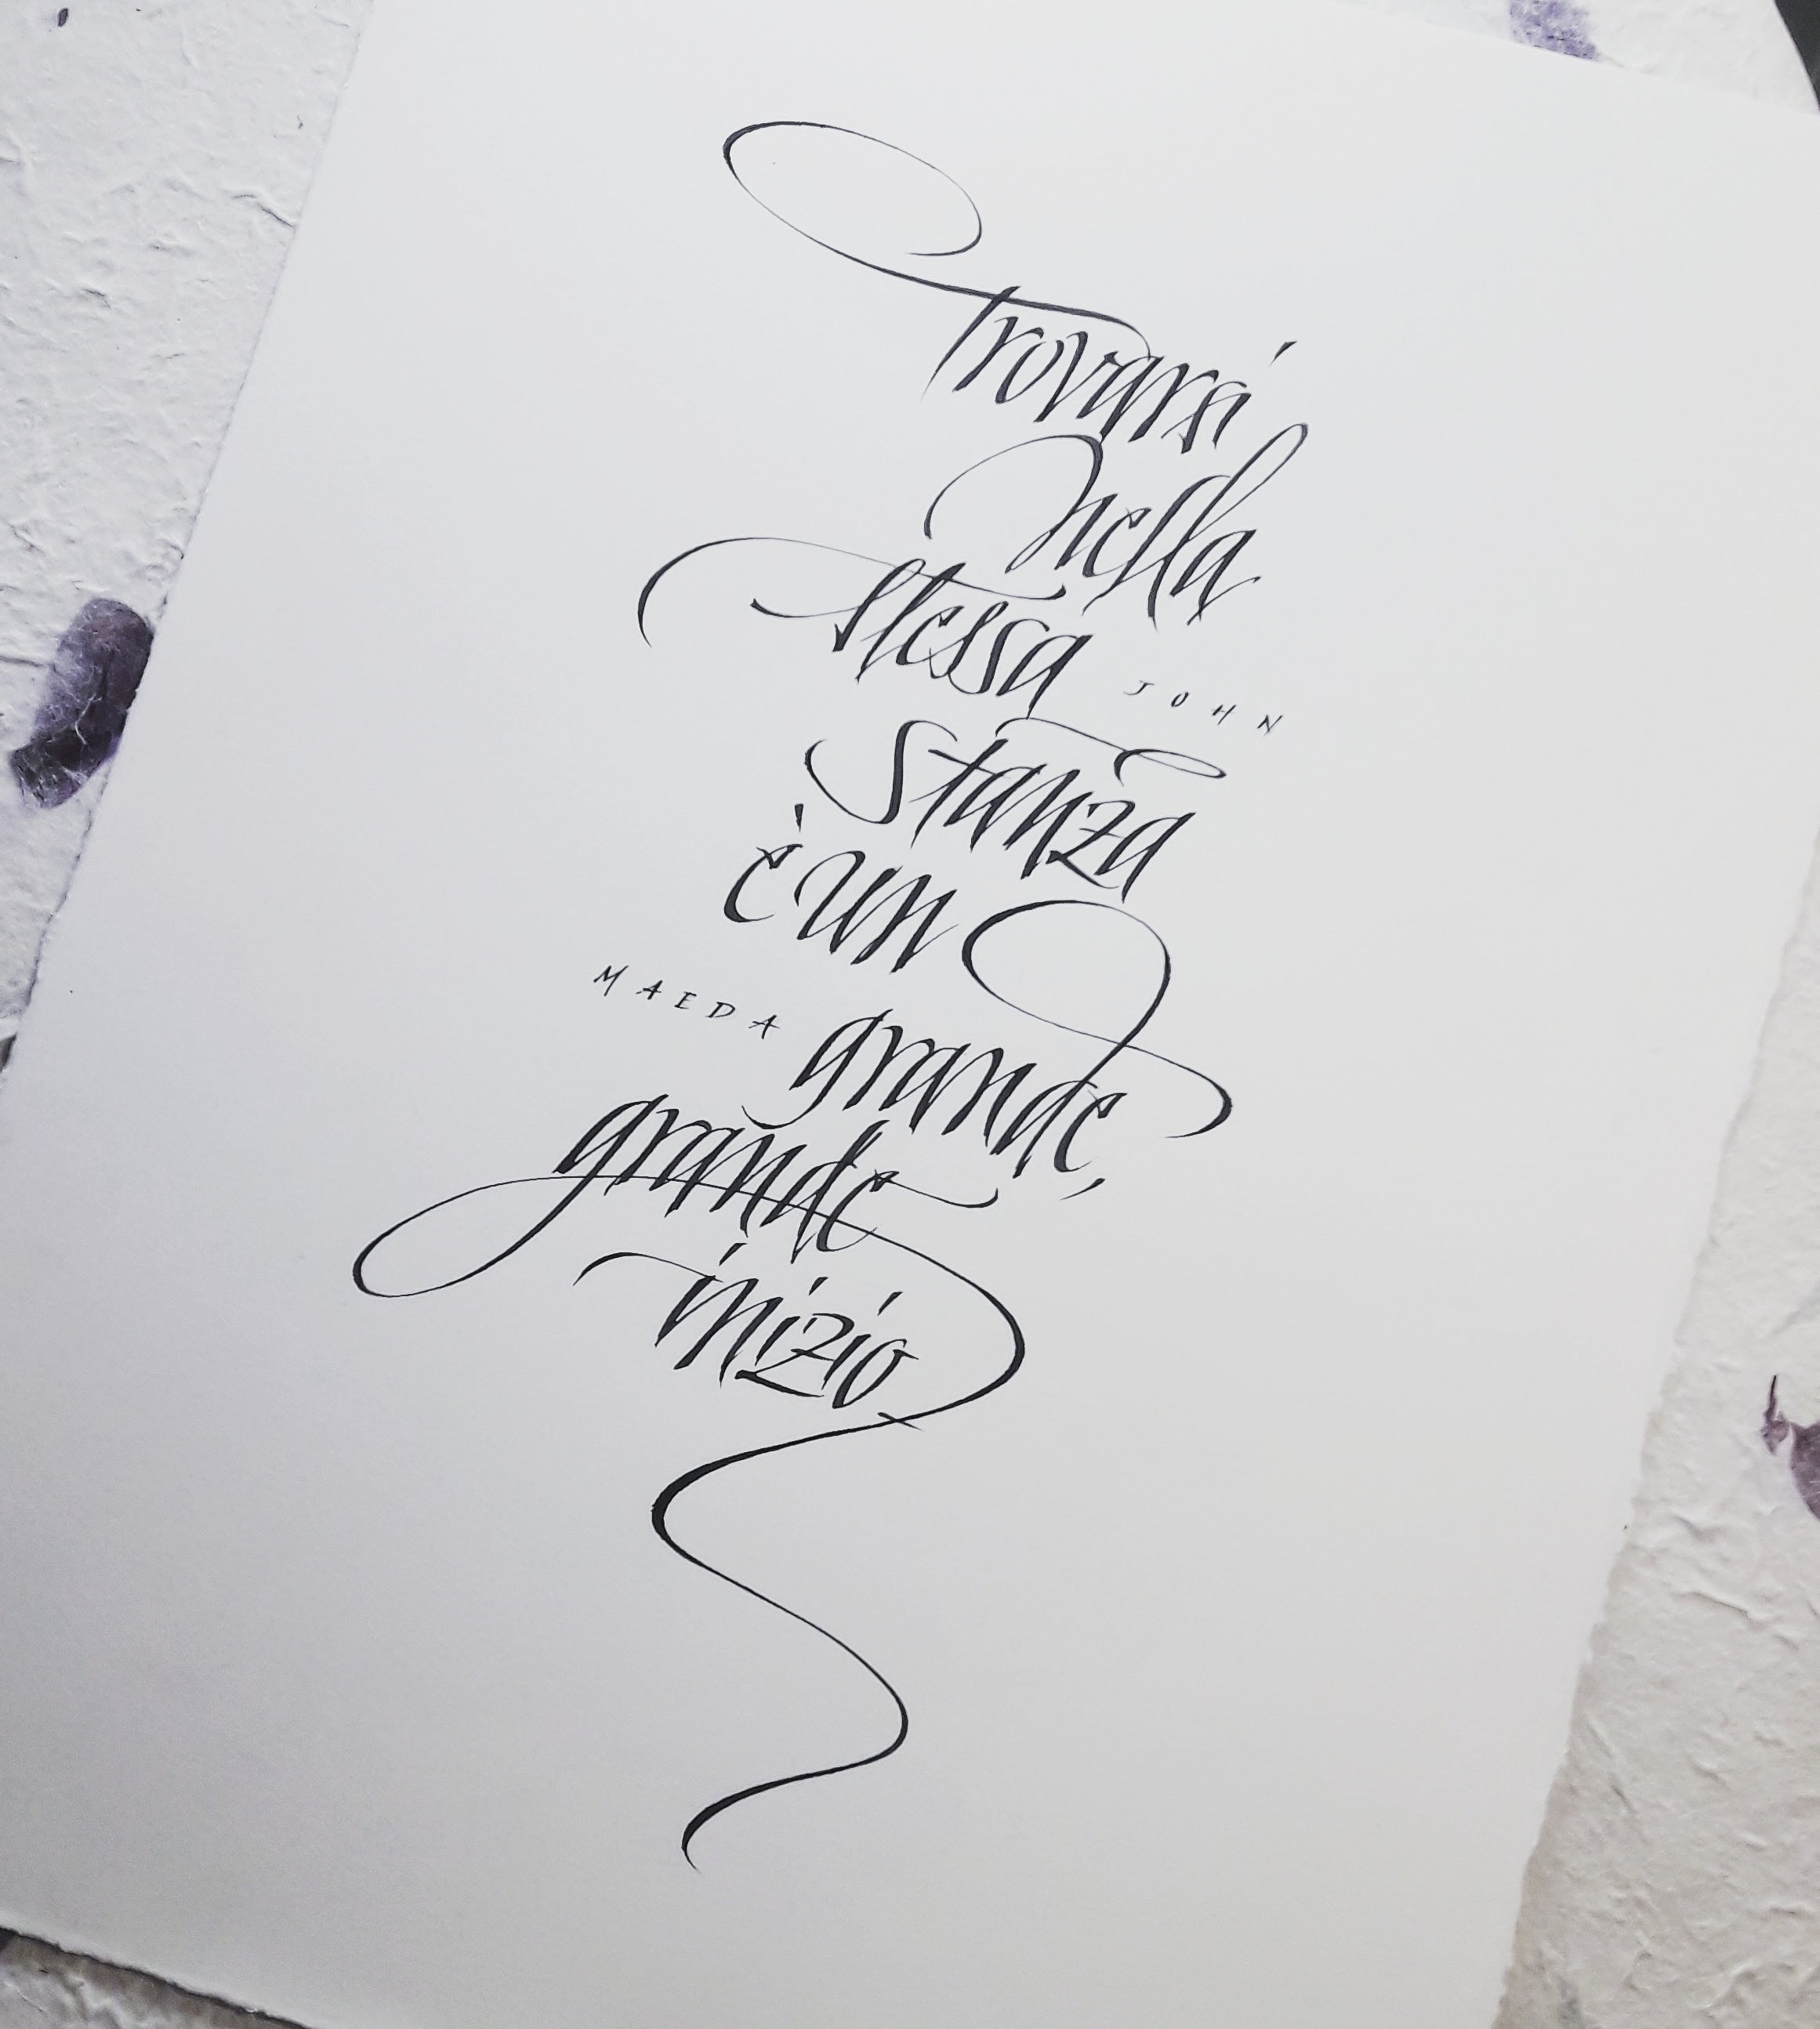 Trovarsi
nella
stessa
JOHN
Stanza
è un
MAEDA
grande,
grande
inizio